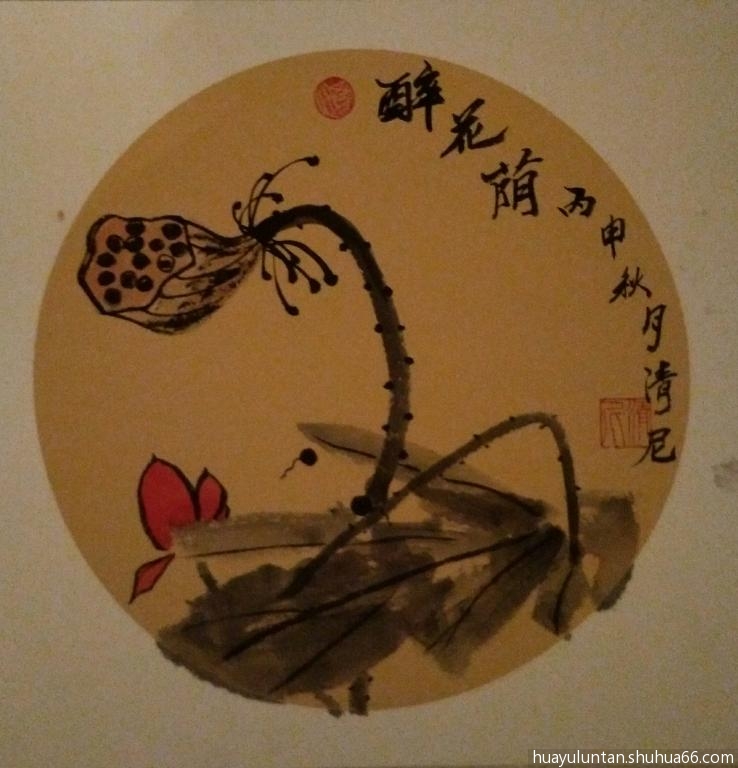 醉花荫
丙申秋月清尼
huayuluntan.shuhua66.com